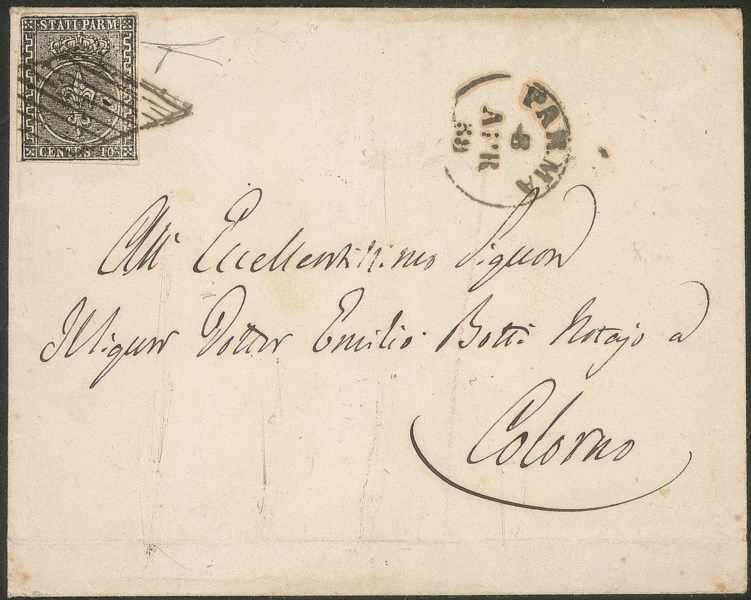 STATI PARM.
CENTES. 10
PARMA
8
APR
All' Eccellentissimo Signor
Il Signor Dottor Emilio Botti Notajo a
Colorno